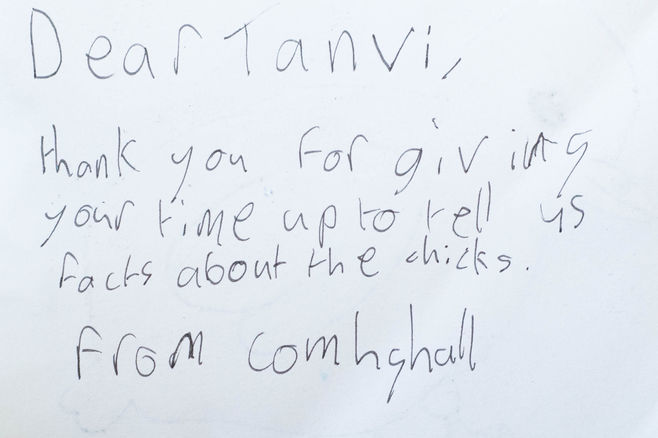 Dear Tanvi,
thank you for giving
your time up to tell us
facts about the chicks.
from comhghall